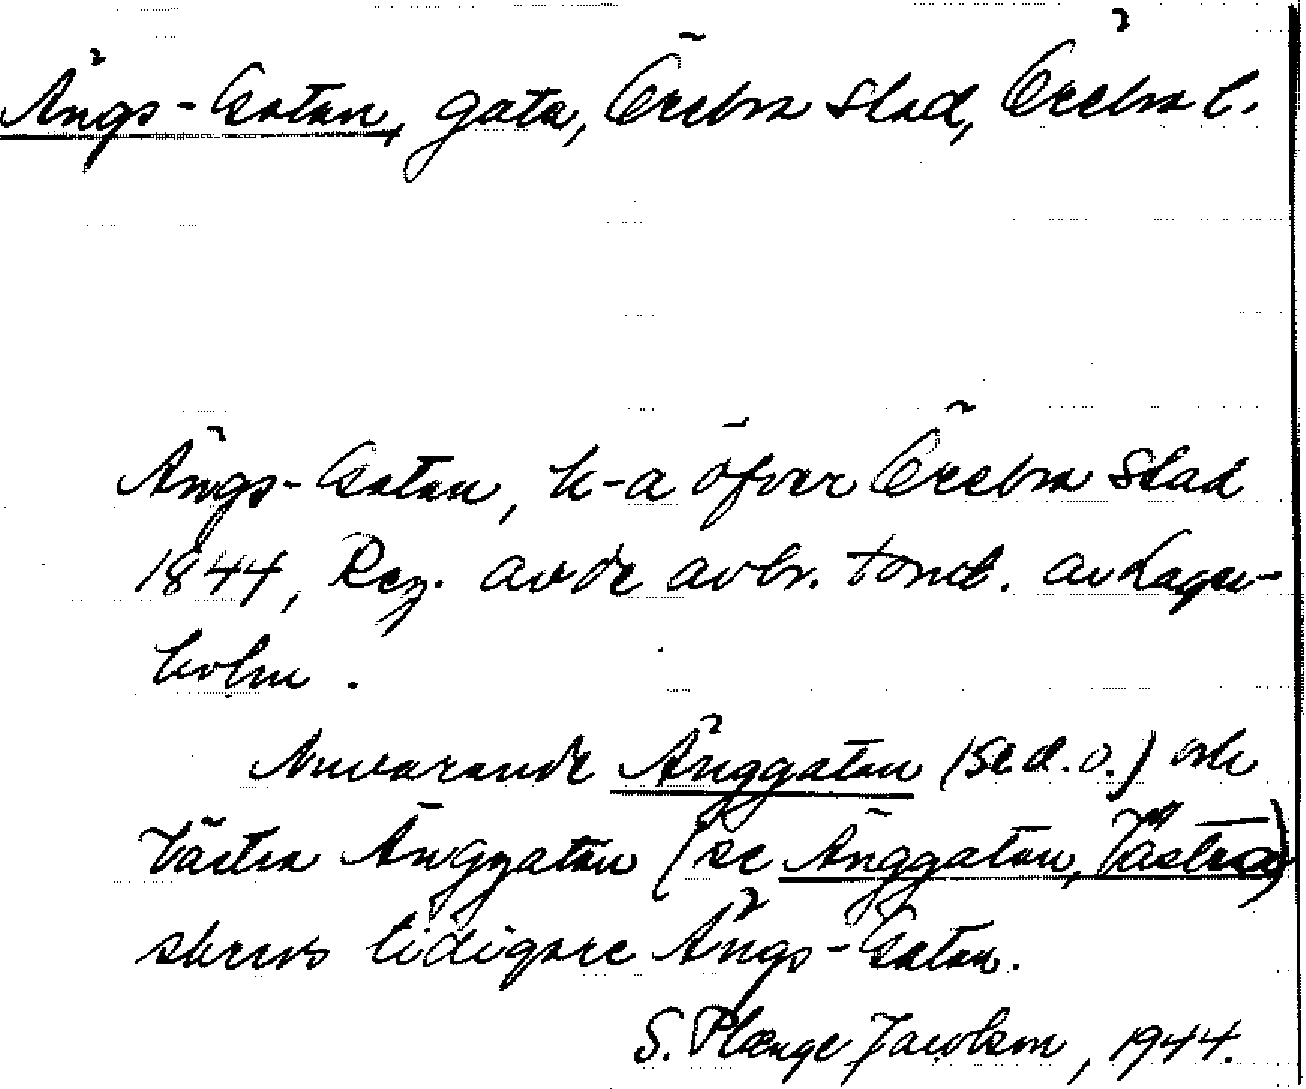 Ängs-Gatan, gata, Örebro stad, Örebro l.
Ängs-Gatan, k-a öfver Örebro Stad
1844, Rez. avde avbr. tomt. av Lager-
holm.
Nuvarande Änggatan (se d. o.) och
Västra Änggatan (se Änggatan, Västra)
skrevs tidigare Ängs-Gatan.
S. Plænge Jacobson, 1944.